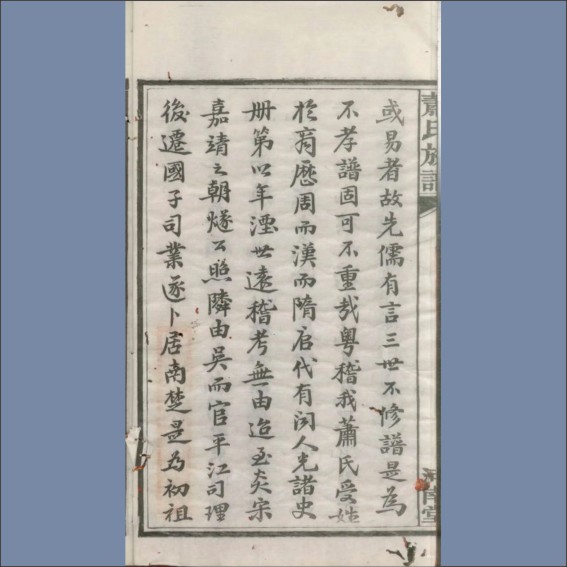 蕭氏族譜
或易者故先儒有言三世不修譜是為
不孝譜固可不重哉粤稽我蕭氏受姓
於商歷周而漢而隋唐代有闻人光諸史
册第以年湮世遠稽考無由迨至炎宗
嘉靖之朝燧公照隣由吳而官平江司理
後遷國子司業逐卜居南楚是为初祖